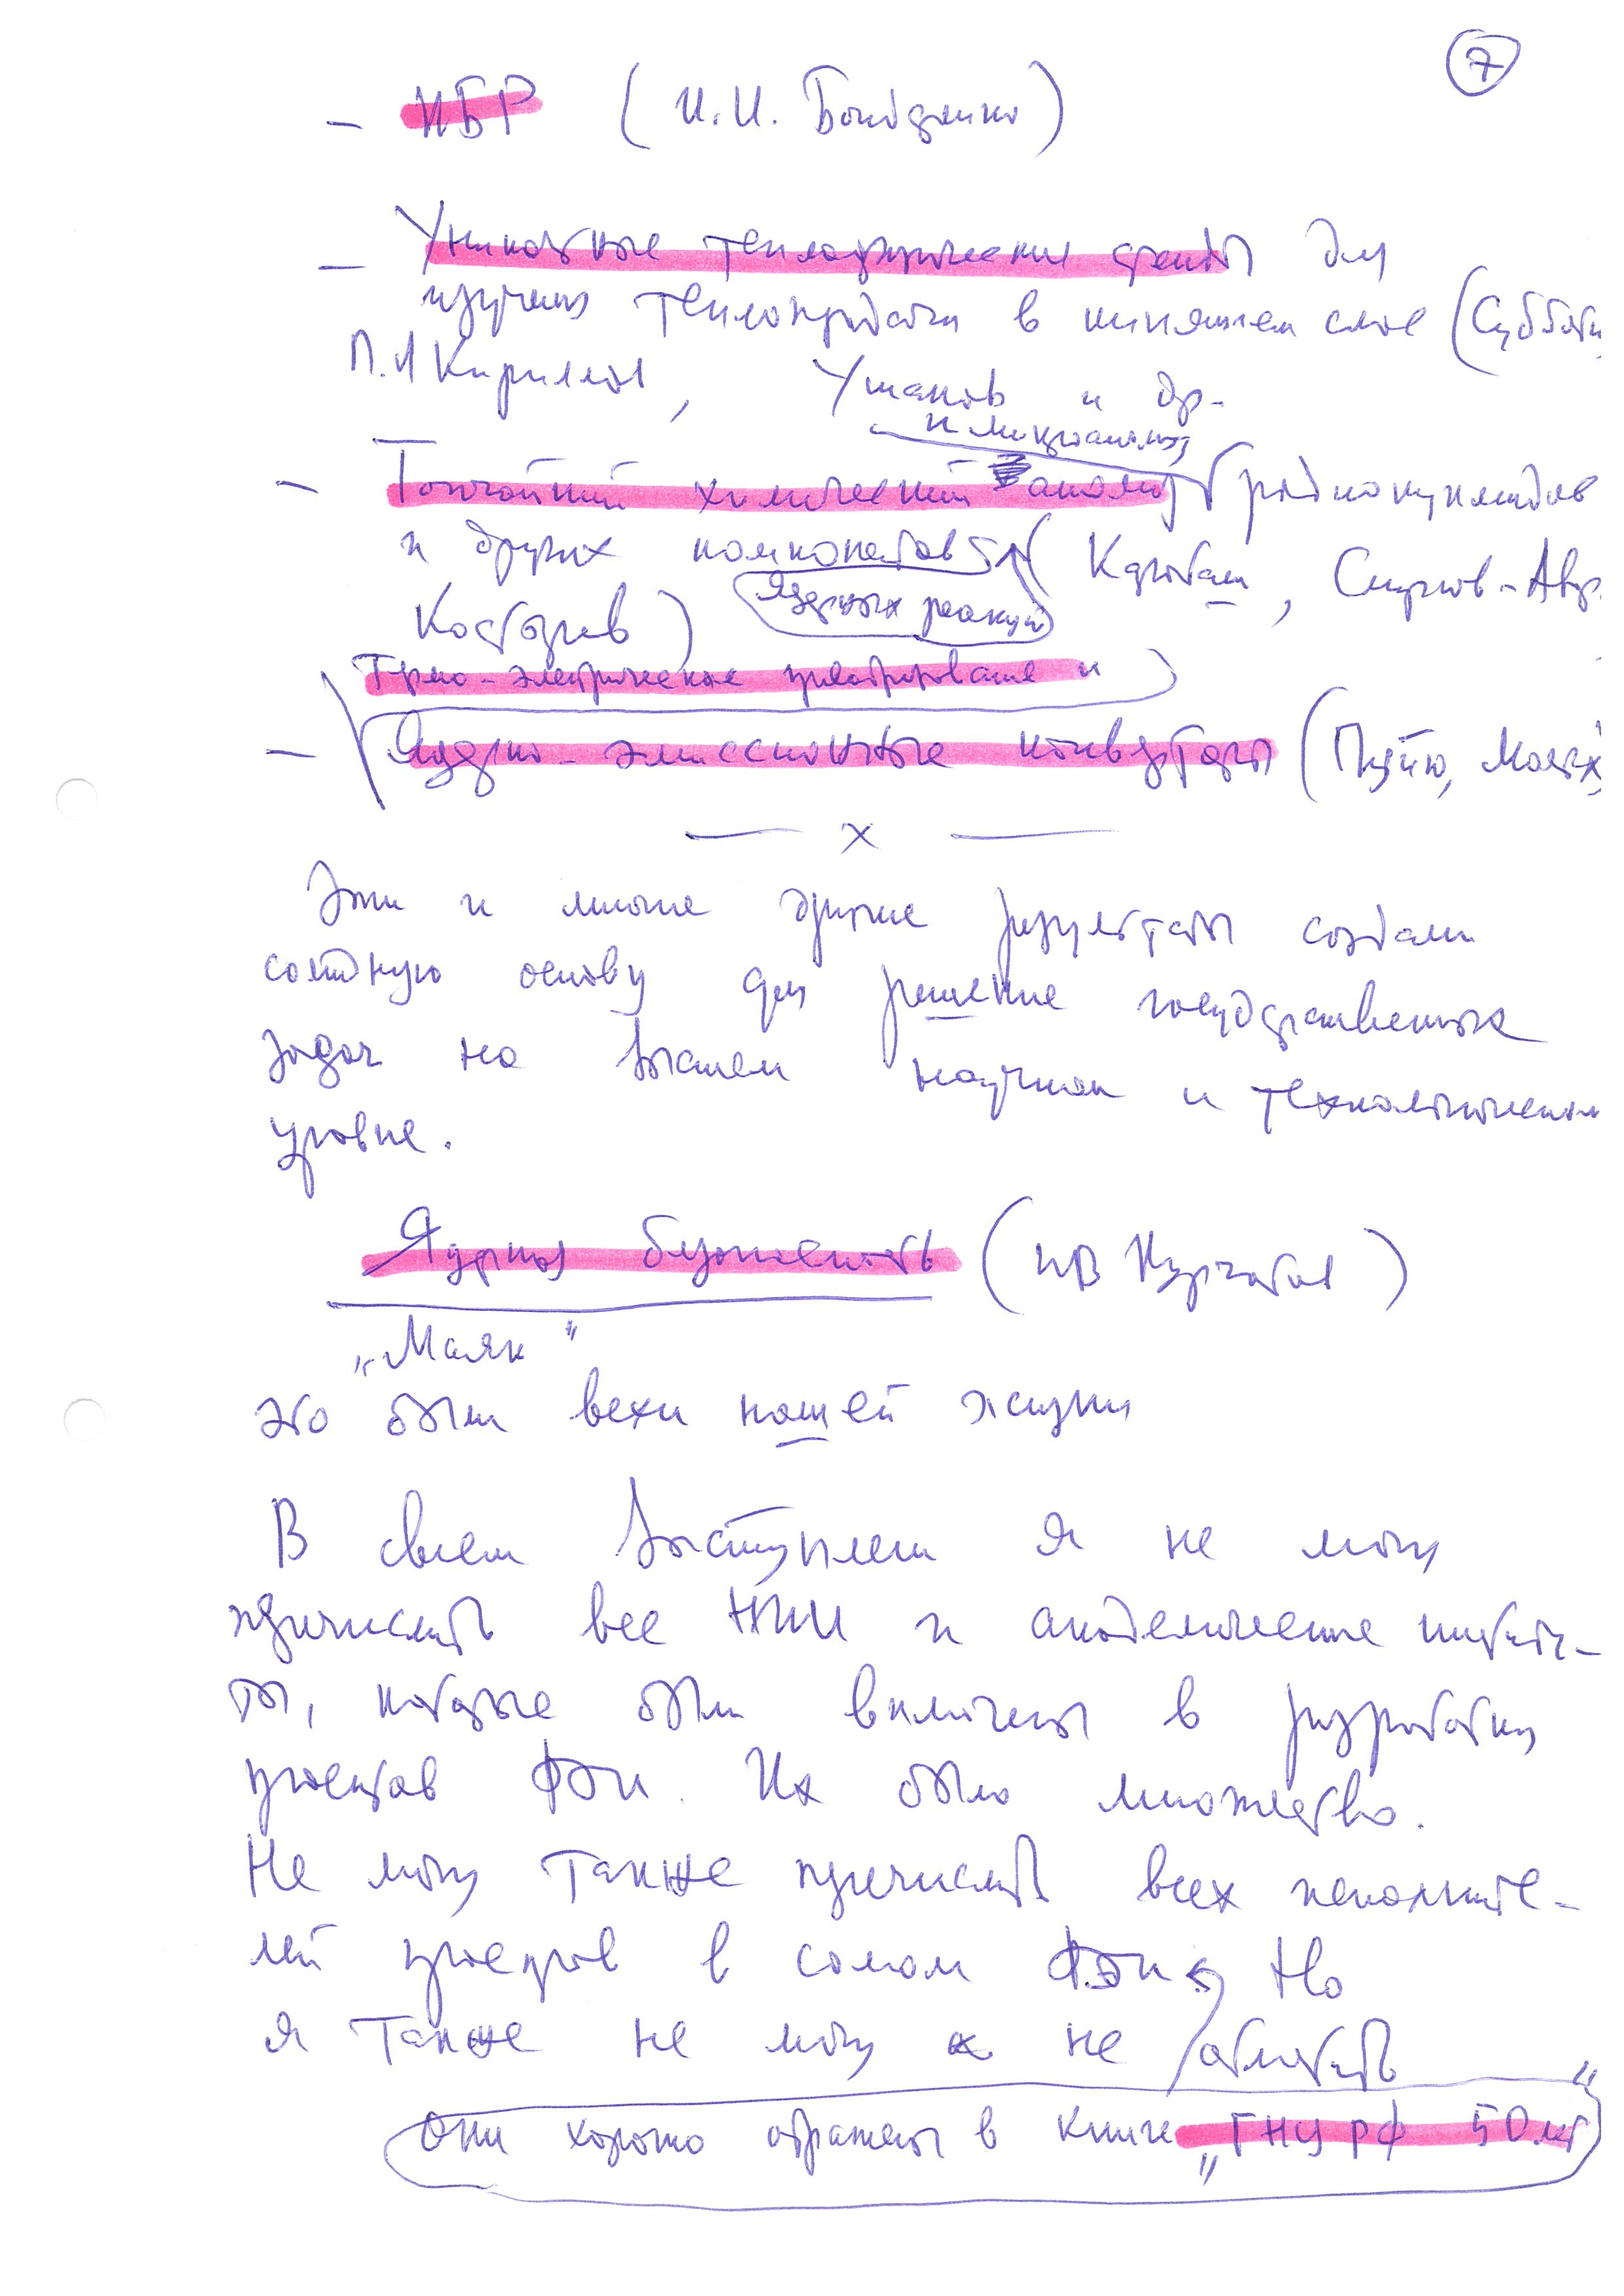 7
– ИБР (И.И. Бондаренко)
– Уникальные теплофизические стенды для
изучения теплопередачи в кипящем слое (Субботин
П.Л Кириллов, Ушаков и др.
и микроанализ
– Тончайший химический анализ радионуклидов
и других компонентов
ядерных реакций
(Карабаш, Смирнов-Авер
Костарев)
Термо-электрическое преобразование и
– Ядерно-эмиссионные конвертеры (Пупко,
— х —
Эти и многие другие результаты создали
солидную основу для решение государственных
задач на высшем научном и технологическом
уровне.
Ядерная безопасность (ИВ Курчатов)
„Маяк"
это были вехи нашей жизни
В своем выступлении я не могу
перечислить все НИИ и академические институ-
ты, которые были включены в разработку
проектов ФЭИ. Их было множество.
Не могу также перечислить всех исполните-
лей проектов в самом ФЭИ. Но
я также не могу не отметить
они хорошо отражены в книге „ГНЦ РФ 50 лет"